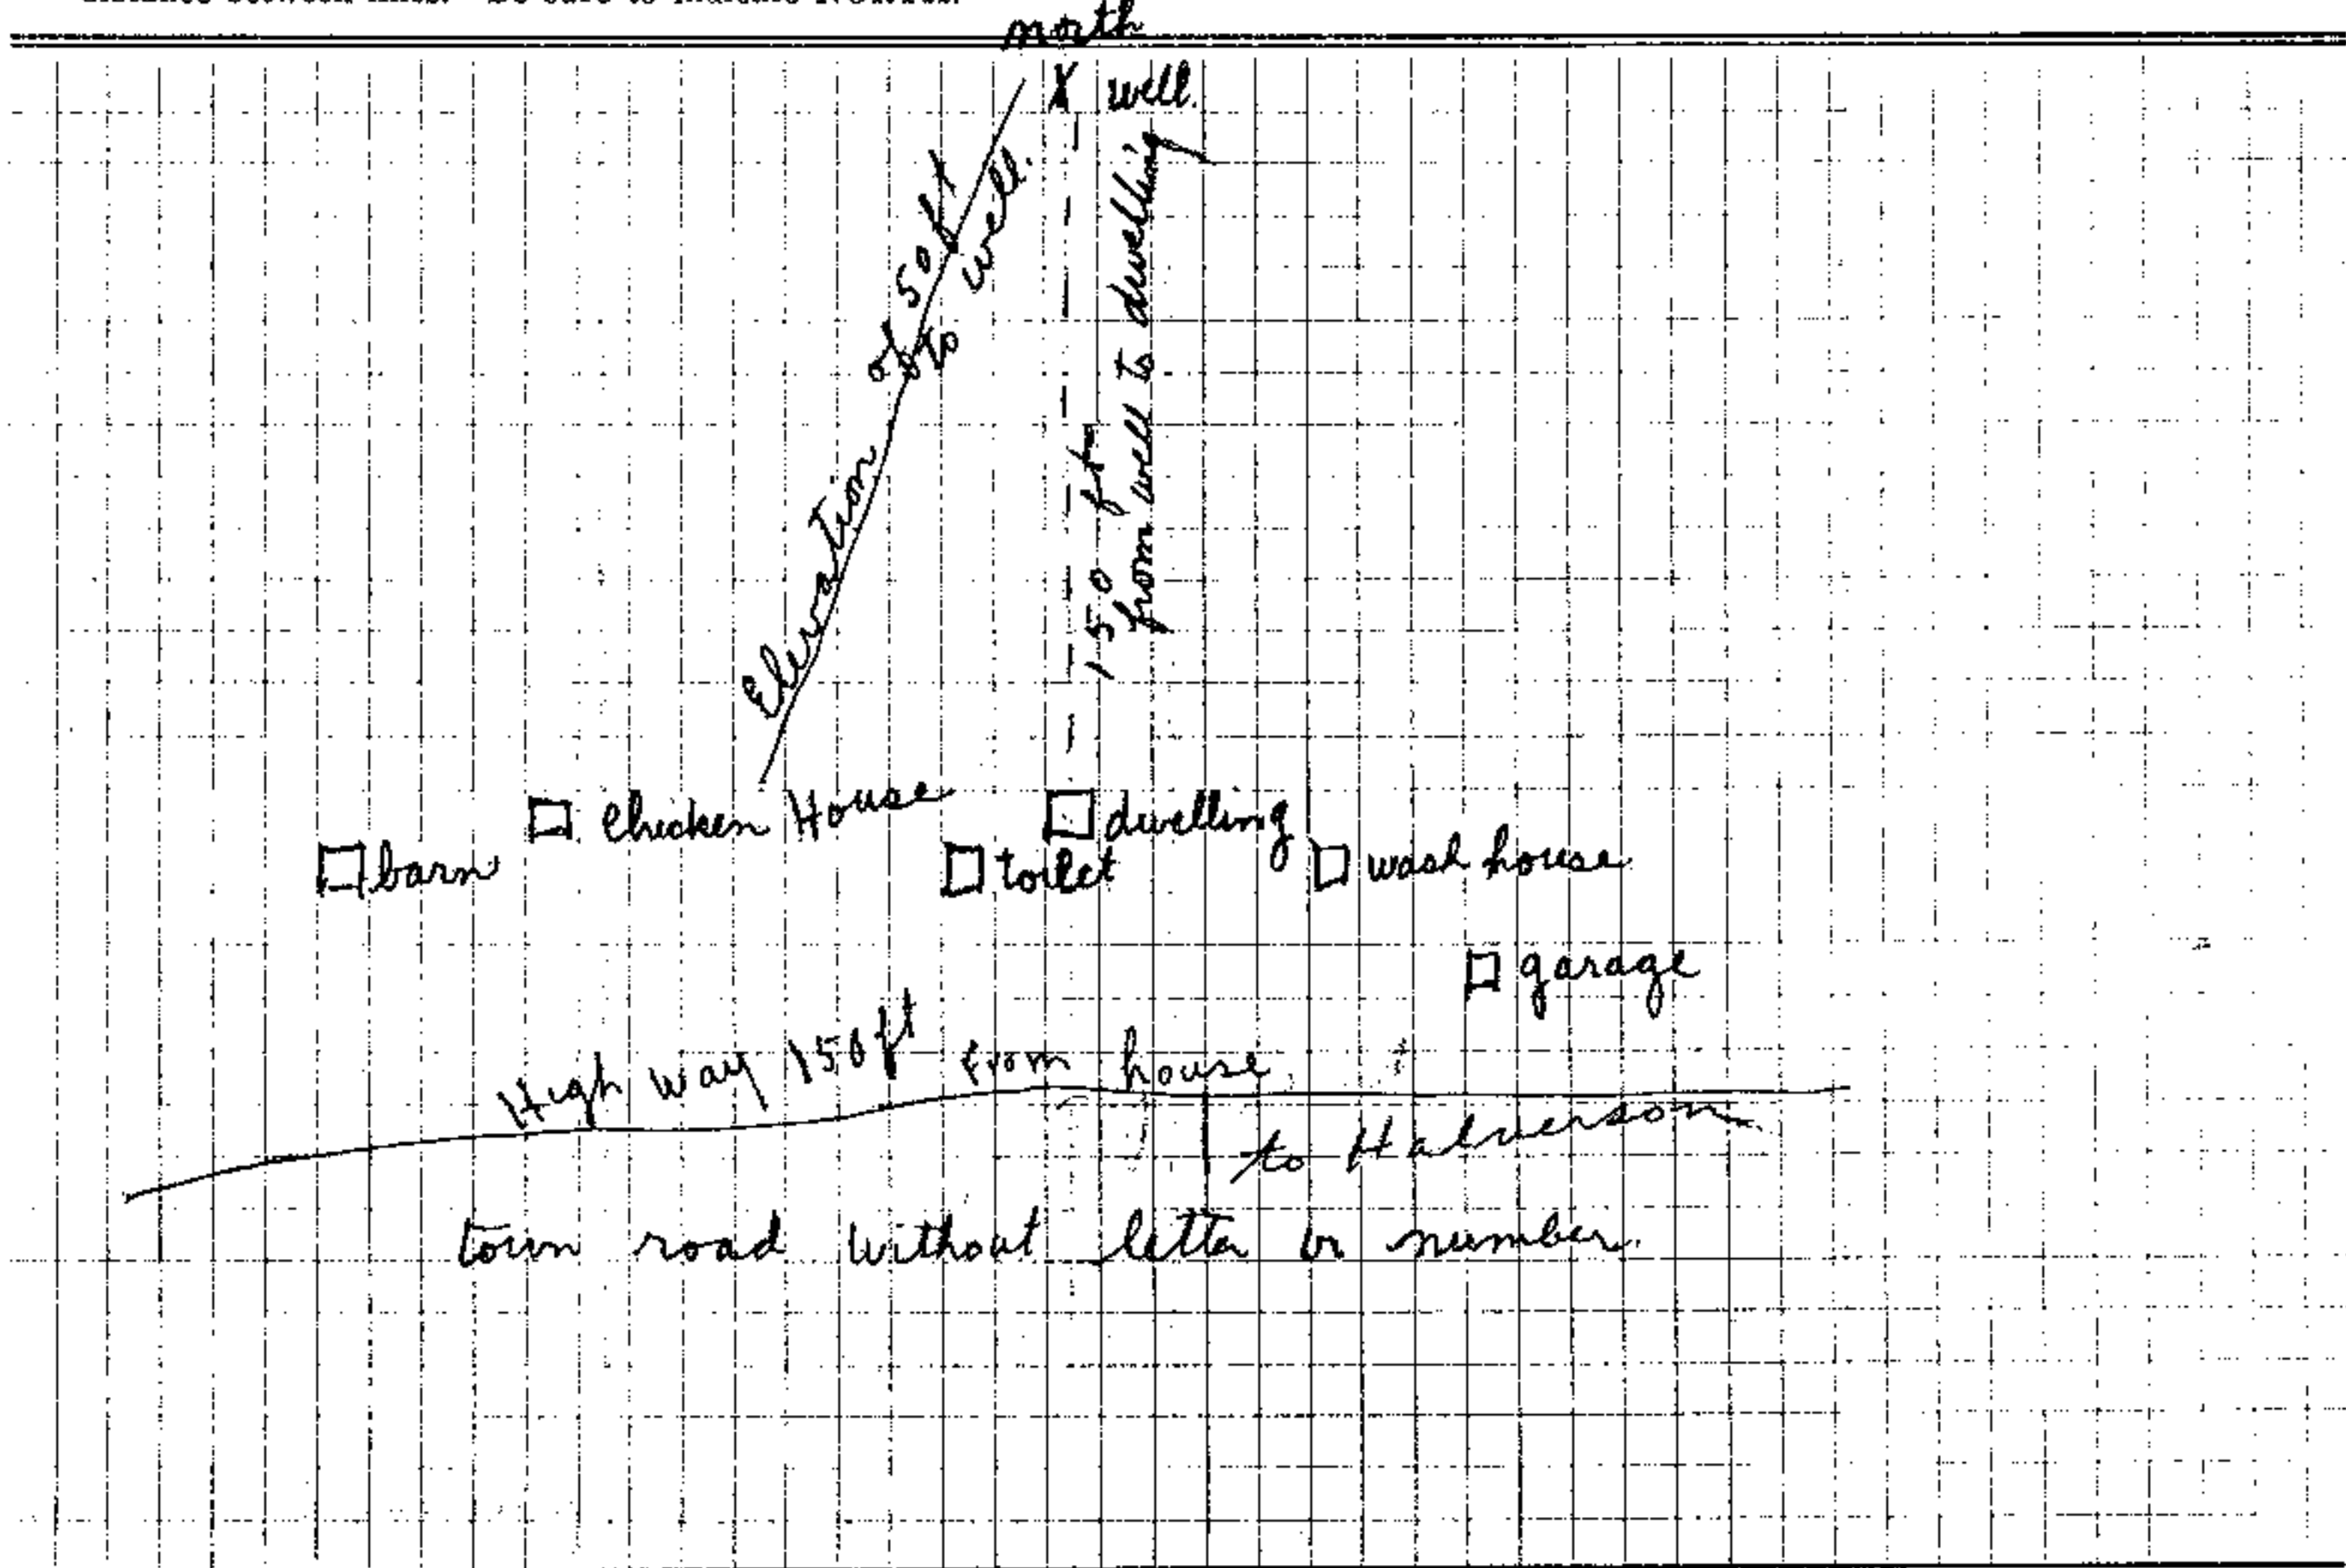 north
X well.
Elevation of 50 ft
to well.
150 ft
from well to dwelling
chicken House
dwelling
barn
toilet
wash house
garage
High way 150 ft from house
to Halverson
town road without letter or number.